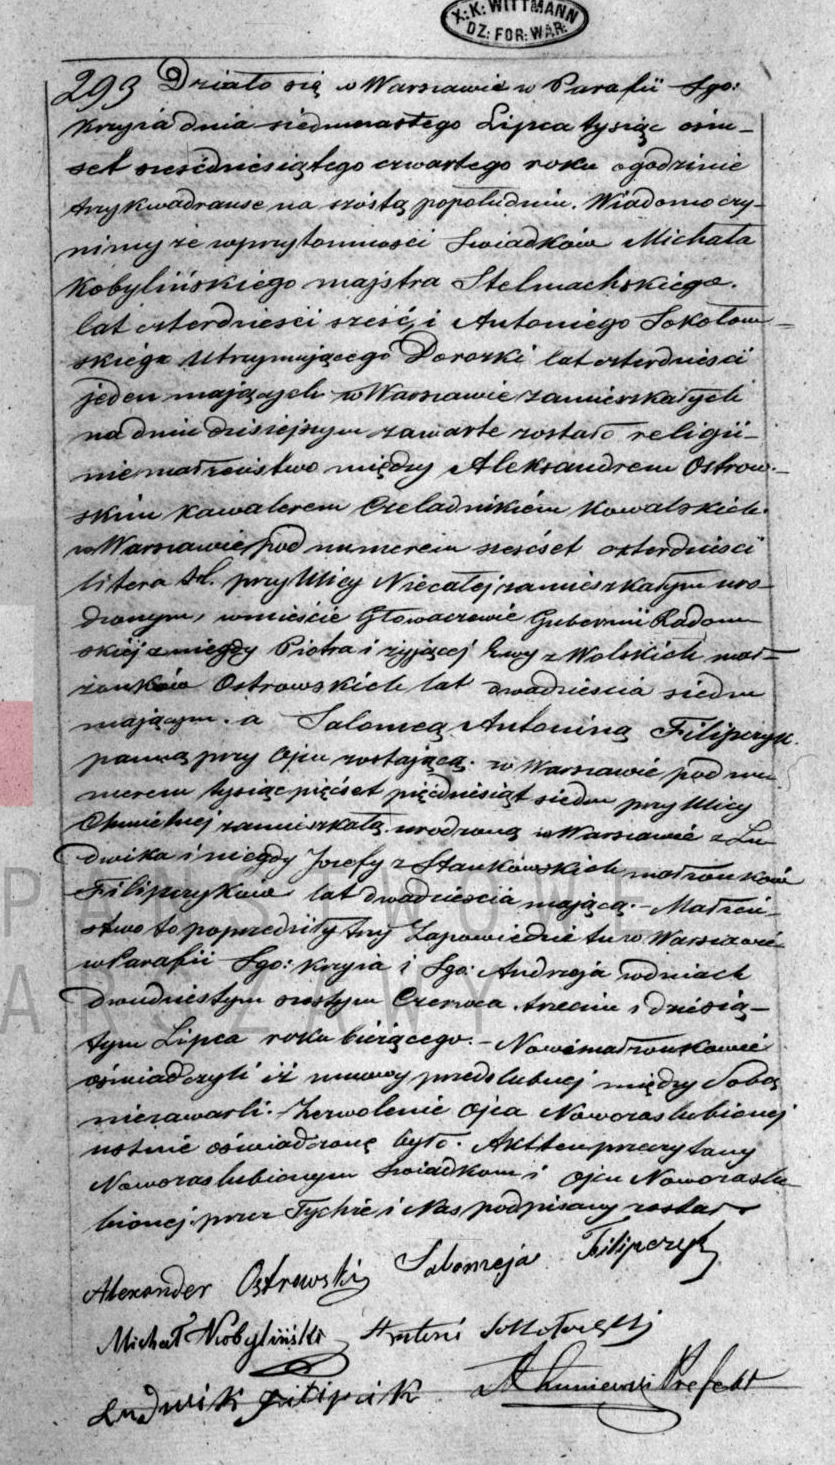 X: K: WITTMANN
DZ: FOR: WAR:
293 Działo się w Warszawie w Parafii Sgo:
Krzyża dnia siedmnastego Lipca tysiąc ośm-
set sześćdziesiątego czwartego roku o godzinie
trzy kwadranse na szóstą popołudniu. Wiadomo czy-
nimy że w przytomności Świadków Michała
Kobylińskiego majstra Stelmachskiego.
lat czterdzieści sześć, i Antoniego Sokołow-
skiego utrzymującego Dorożki lat czterdzieści
jeden mających w Warszawie zamieszkałych
na dniu dzisiejszym zawarte zostało religij-
nie małżeństwo między Aleksandrem Ostrow-
skim kawalerem Czeladnikiem Kowalskich
w Warszawie pod numerem sześćset czterdzieści
litera przy Ulicy Niecałej zamieszkałym uro-
dzonym, w mieście Głowaczewie Gubernii Radom-
skiej z niegdy Piotra i żyjącej Ewy z Wolskich mał-
żonków Ostrowskich lat dwadzieścia siedm
mającym. a Salomeą Antoniną Filipczyk.
panną przy Ojcu zostającą. w Warszawie pod nu-
merem tysiąc pięćset pięćdziesiąt siedm przy Ulicy
Chmielnej zamieszkałą urodzoną w Warszawie z Lu-
dwika i niegdy Józefy z Stankowskich małżonków
Filipczyków lat dwadzieścia mającą. - Małżeń-
stwo to poprzedziły trzy Zapowiedzie tu w Warszawie
w Parafii Sgo: Krzyża i Sgo: Andrzeja w dniach
dwudziestym szóstym Czerwca trzecim i dziesią-
tym Lipca roku bieżącego. - Nowimałżonkowie
oświadczyli iż umowy przedślubnej między Sobą
niezawarli. Zezwolenie Ojca Nowozaślubionej
ustnie oświadczone było. Akt ten przeczytany
Nowozaślubionym Świadkom i Ojcu Nowozaślu-
bionej przez Tychże i Nas podpisany został
Alexander Ostrowski Salomeja Filipczyk
Michał Kobyliński Antoni Sokołowski
Ludwik Filipcik Prefekt
PAŃSTWOWE
ARSZAWY